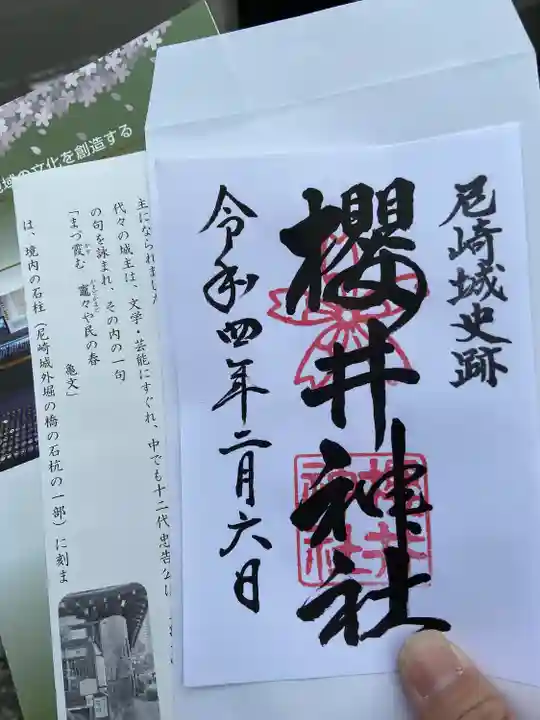 尼崎城史跡
櫻井神社
令和四年二月六日
櫻井
神社
域の文化を創造する
主になられました
代々の城主は、文学・芸能にすぐれ、中でも十二代忠告公は
の句を詠まれ、その内の一句
「まづ霞む　竈々や民の春
亀文」
は、境内の石柱(尼崎城外堀の橋の石杭の一部)に刻ま